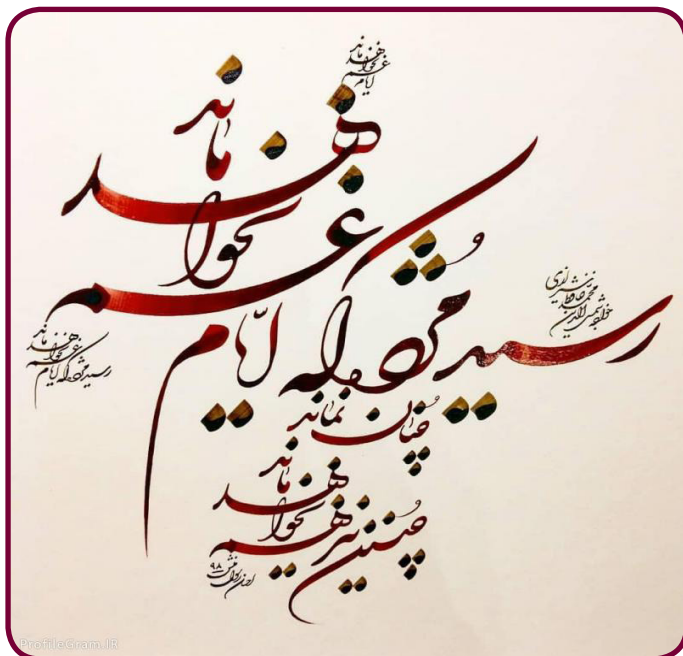 ایام غم نخواهد ماند
رسید مژده که ایام غم نخواهد ماند
خواجه شمس الدین محمد حافظ شیرازی
رسید مژده که ایام غم نخواهد ماند
چنان نماند
چنین نیز هم نخواهد ماند
۹۸
ProfileGram.IR